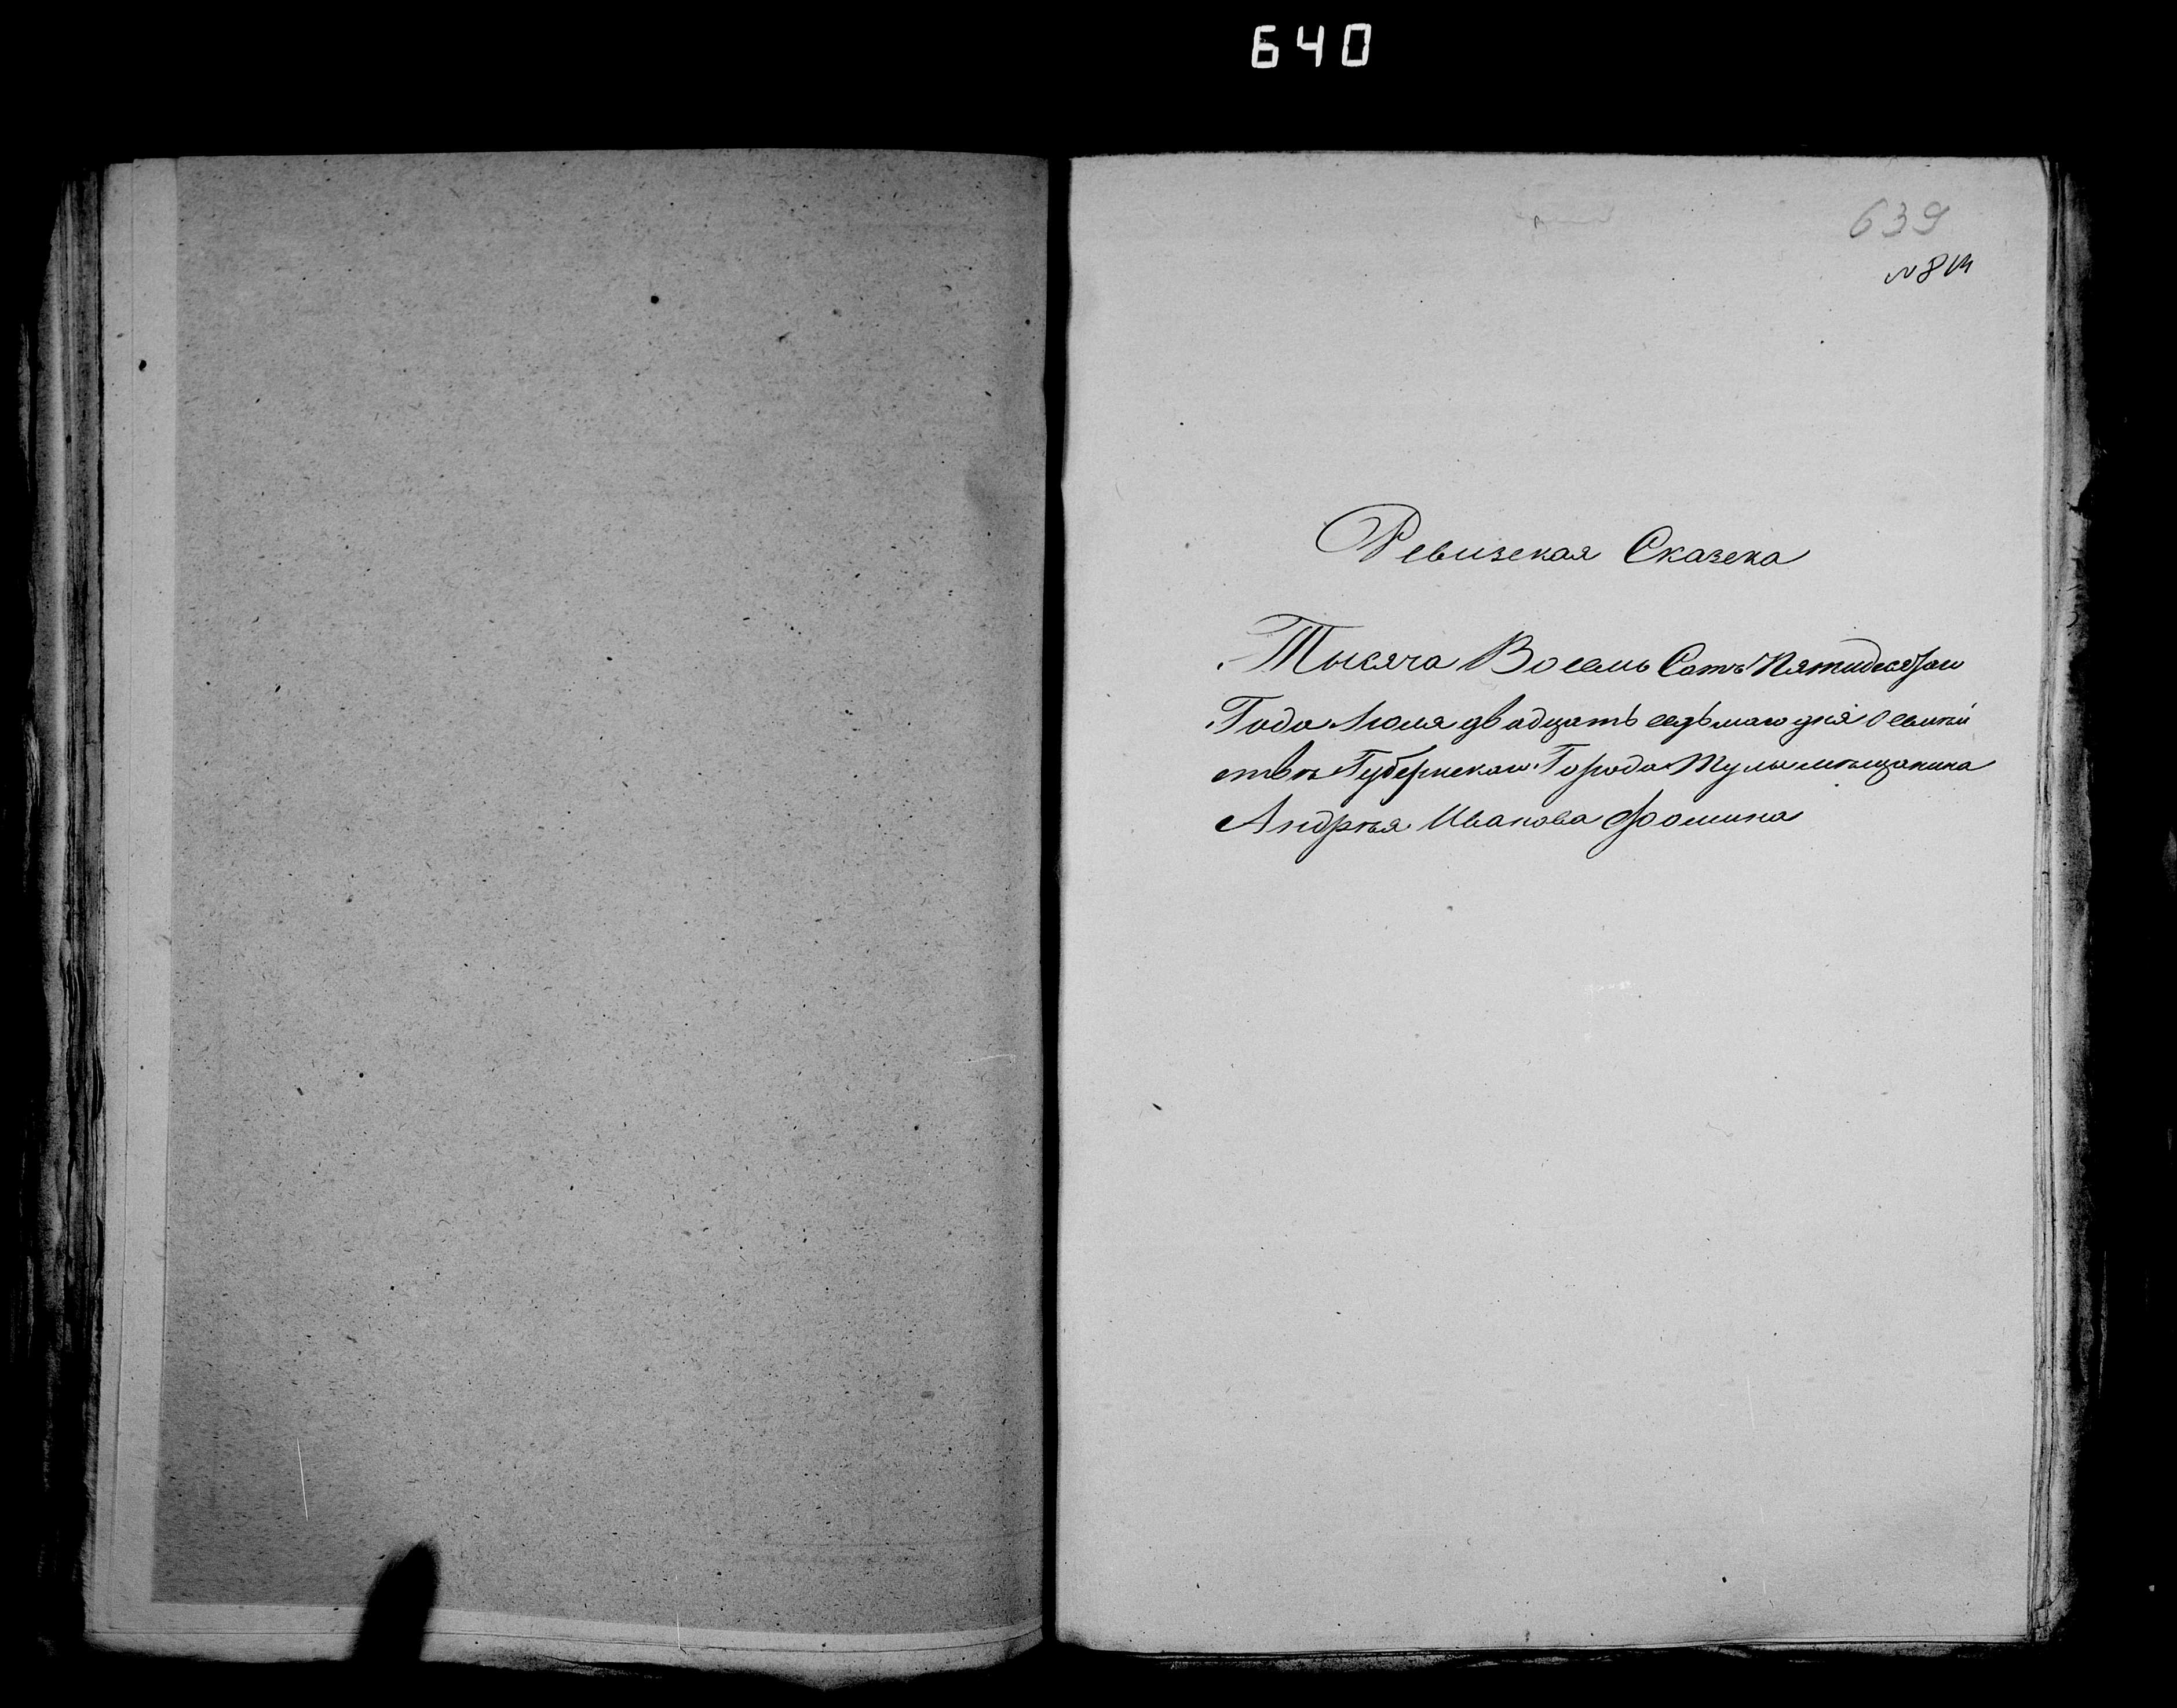 640
639
Ревизская Сказска
Тысяча Восемь Сотъ Пятидесятаго
Года Июля двадцать седьмаго дня О семей
ствѣ Губернскаго Города Тулы мѣщанина
Андрѣя Иванова Фомина